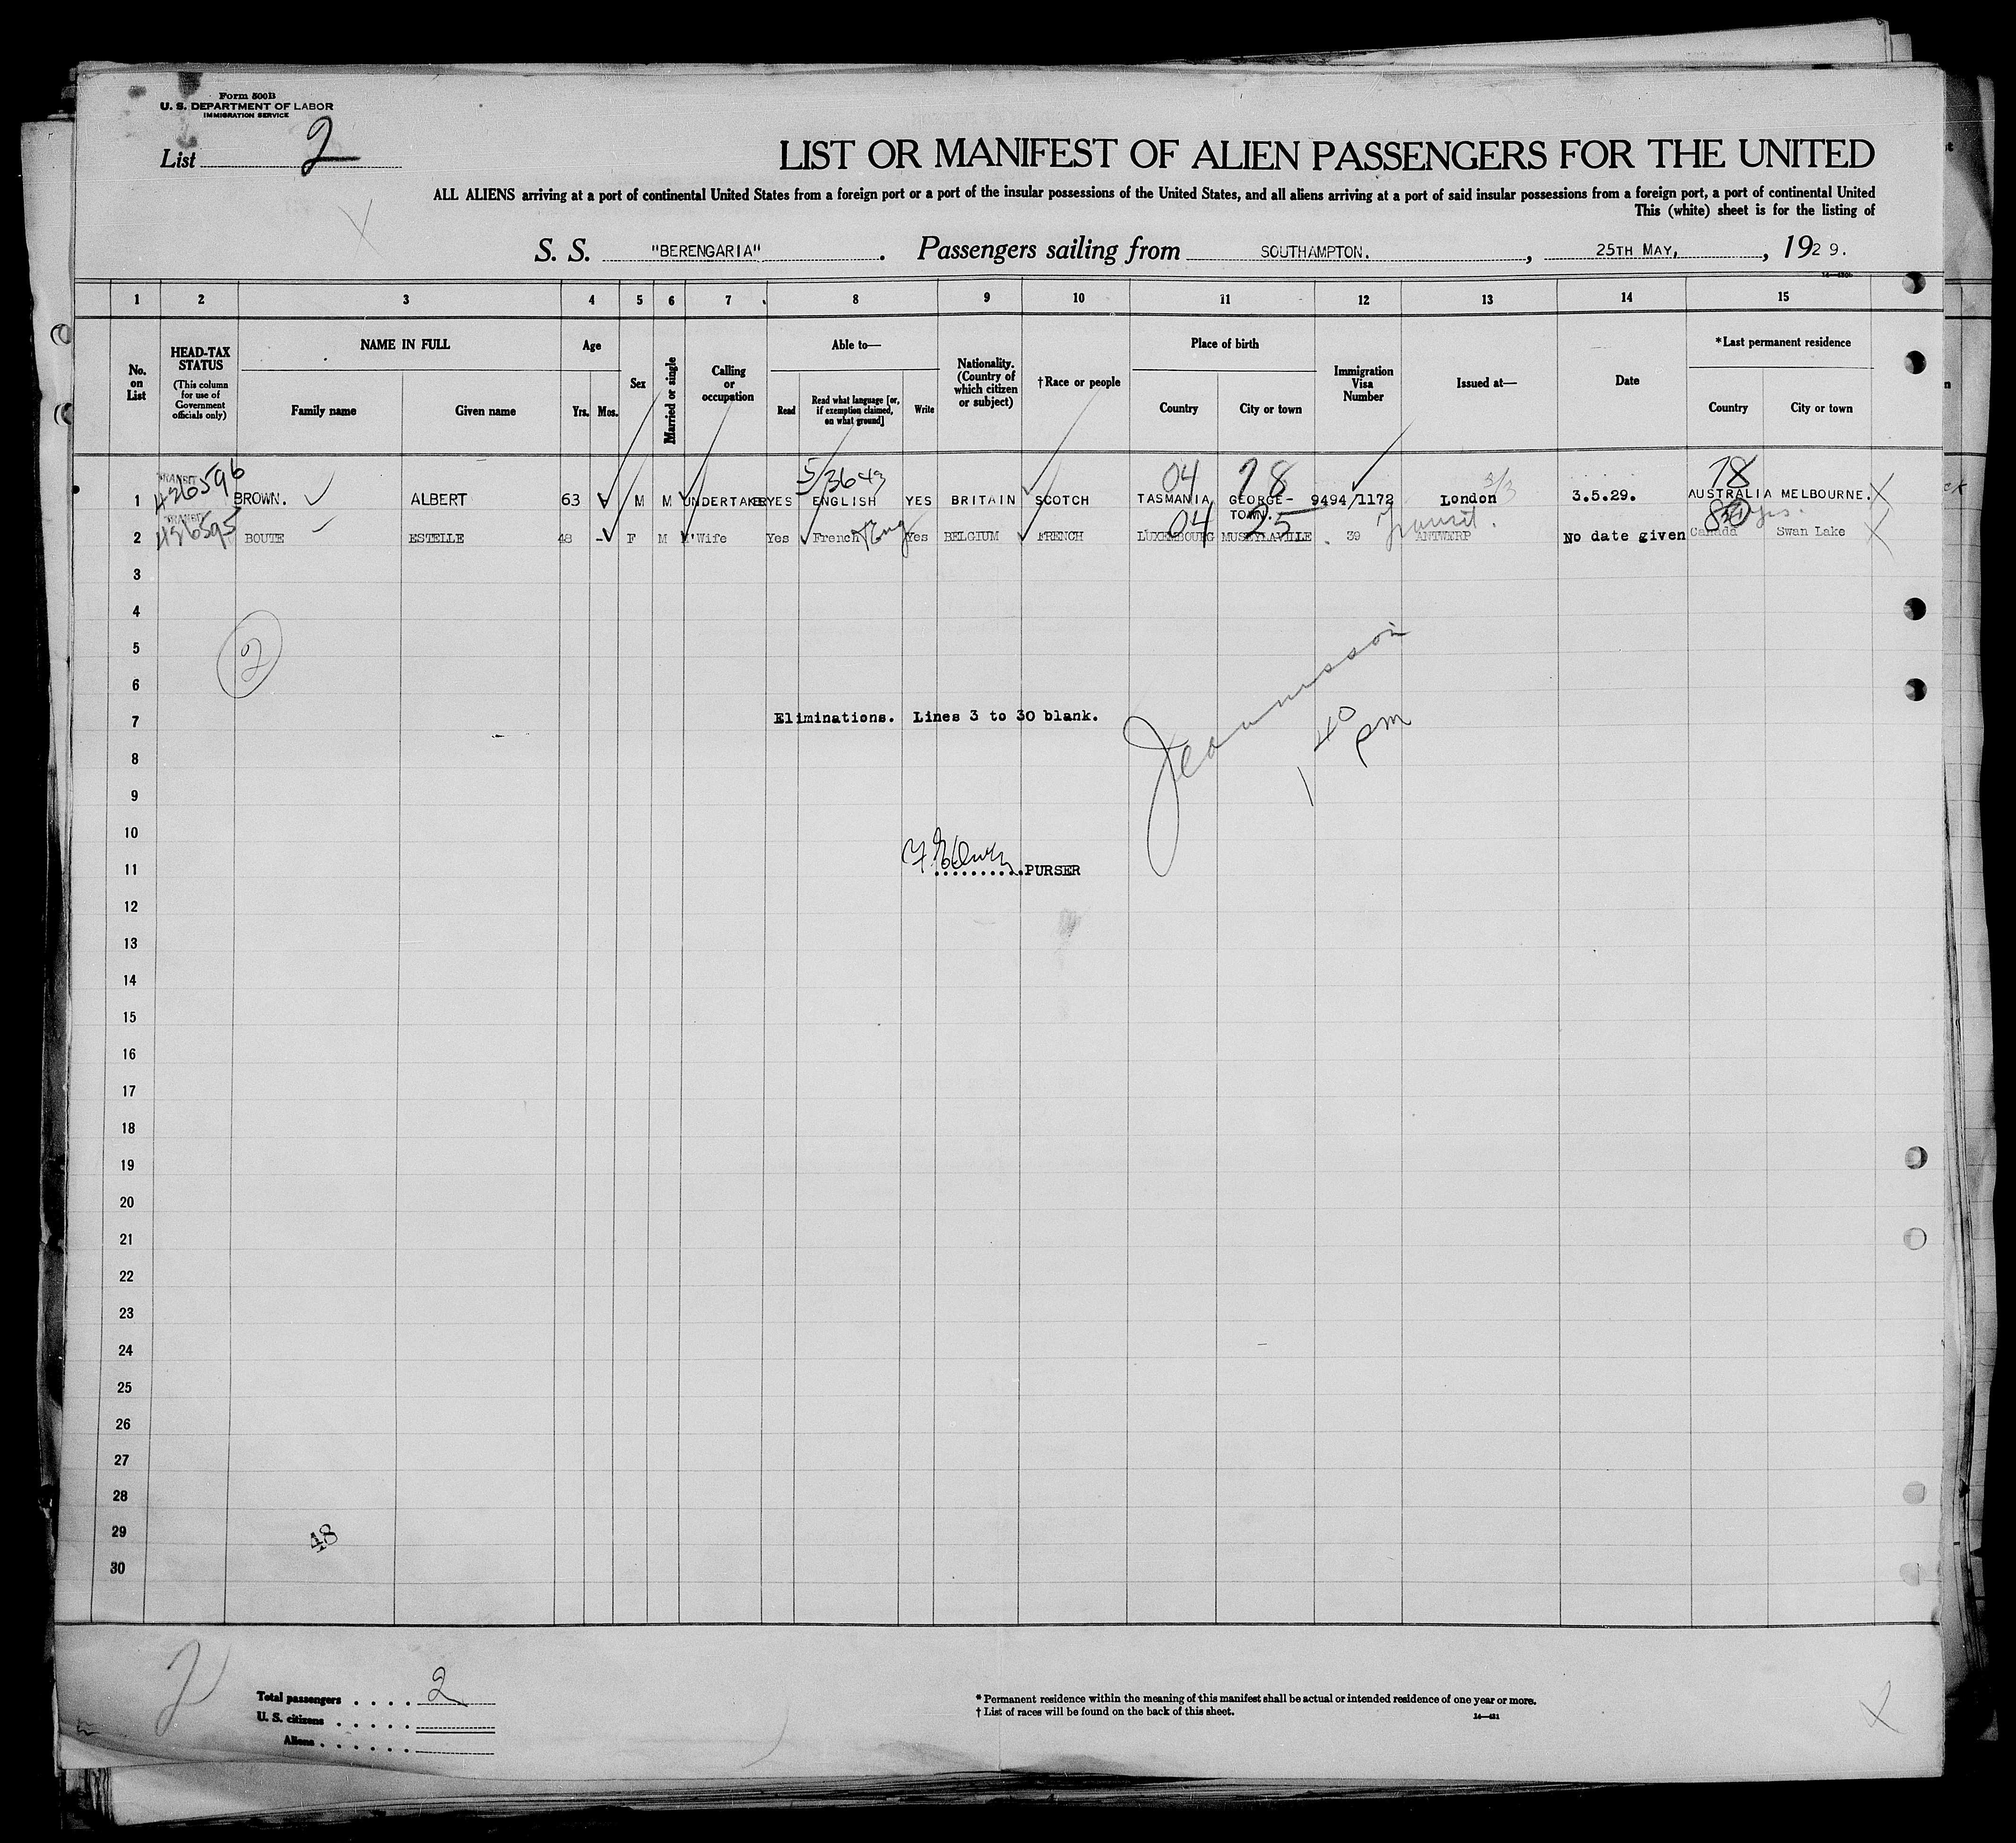 Form 500B
U. S. DEPARTMENT OF LABOR
IMMIGRATION SERVICE
List 2
LIST OR MANIFEST OF ALIEN PASSENGERS FOR THE UNITED
ALL ALIENS arriving at a port of continental United States from a foreign port or a port of the insular possessions of the United States, and all aliens arriving at a port of said insular possessions from a foreign port, a port of continental United
This (white) sheet is for the listing of
S. S. "BERENGARIA". Passengers sailing from SOUTHAMPTON., 25TH MAY, , 1929.
1 2 3 4 5 6 7 8 9 10 11 12 13 14 15
No. on List
HEAD-TAX STATUS (This column for use of Government officials only)
NAME IN FULL
Family name Given name
Age
Yrs. Mos.
Sex
Married or single
Calling or occupation
Able to—
Read Read what language [or, if exemption claimed, on what ground] Write
Nationality. (Country of which citizen or subject)
†Race or people
Place of birth
Country City or town
Immigration Visa Number
Issued at—
Date
*Last permanent residence
Country City or town
TRANSIT 426596 5/3643 04 78 78
1 BROWN. ALBERT 63 M M UNDERTAKER YES ENGLISH YES BRITAIN SCOTCH TASMANIA GEORGE-TOWN. 9494/1172 London 3.5.29. AUSTRALIA MELBOURNE. X
TRANSIT 426595 04 25 Transit. 80 yrs.
2 BOUTE ESTELLE 48 - F M H'Wife Yes French & Eng Yes BELGIUM FRENCH LUXEMBOURG 39 ANTWERP No date given Canada Swan Lake X
3
4
5
6
7
8
9
10
11
12
13
14
15
16
17
18
19
20
21
22
23
24
25
26
27
28
29
30
2
Eliminations. Lines 3 to 30 blank.
1 40 pm
..........PURSER
48
2
Total passengers . . . . 2
U. S. citizens . . . . .
Aliens . . . . . .
* Permanent residence within the meaning of this manifest shall be actual or intended residence of one year or more.
† List of races will be found on the back of this sheet.
14—431
X